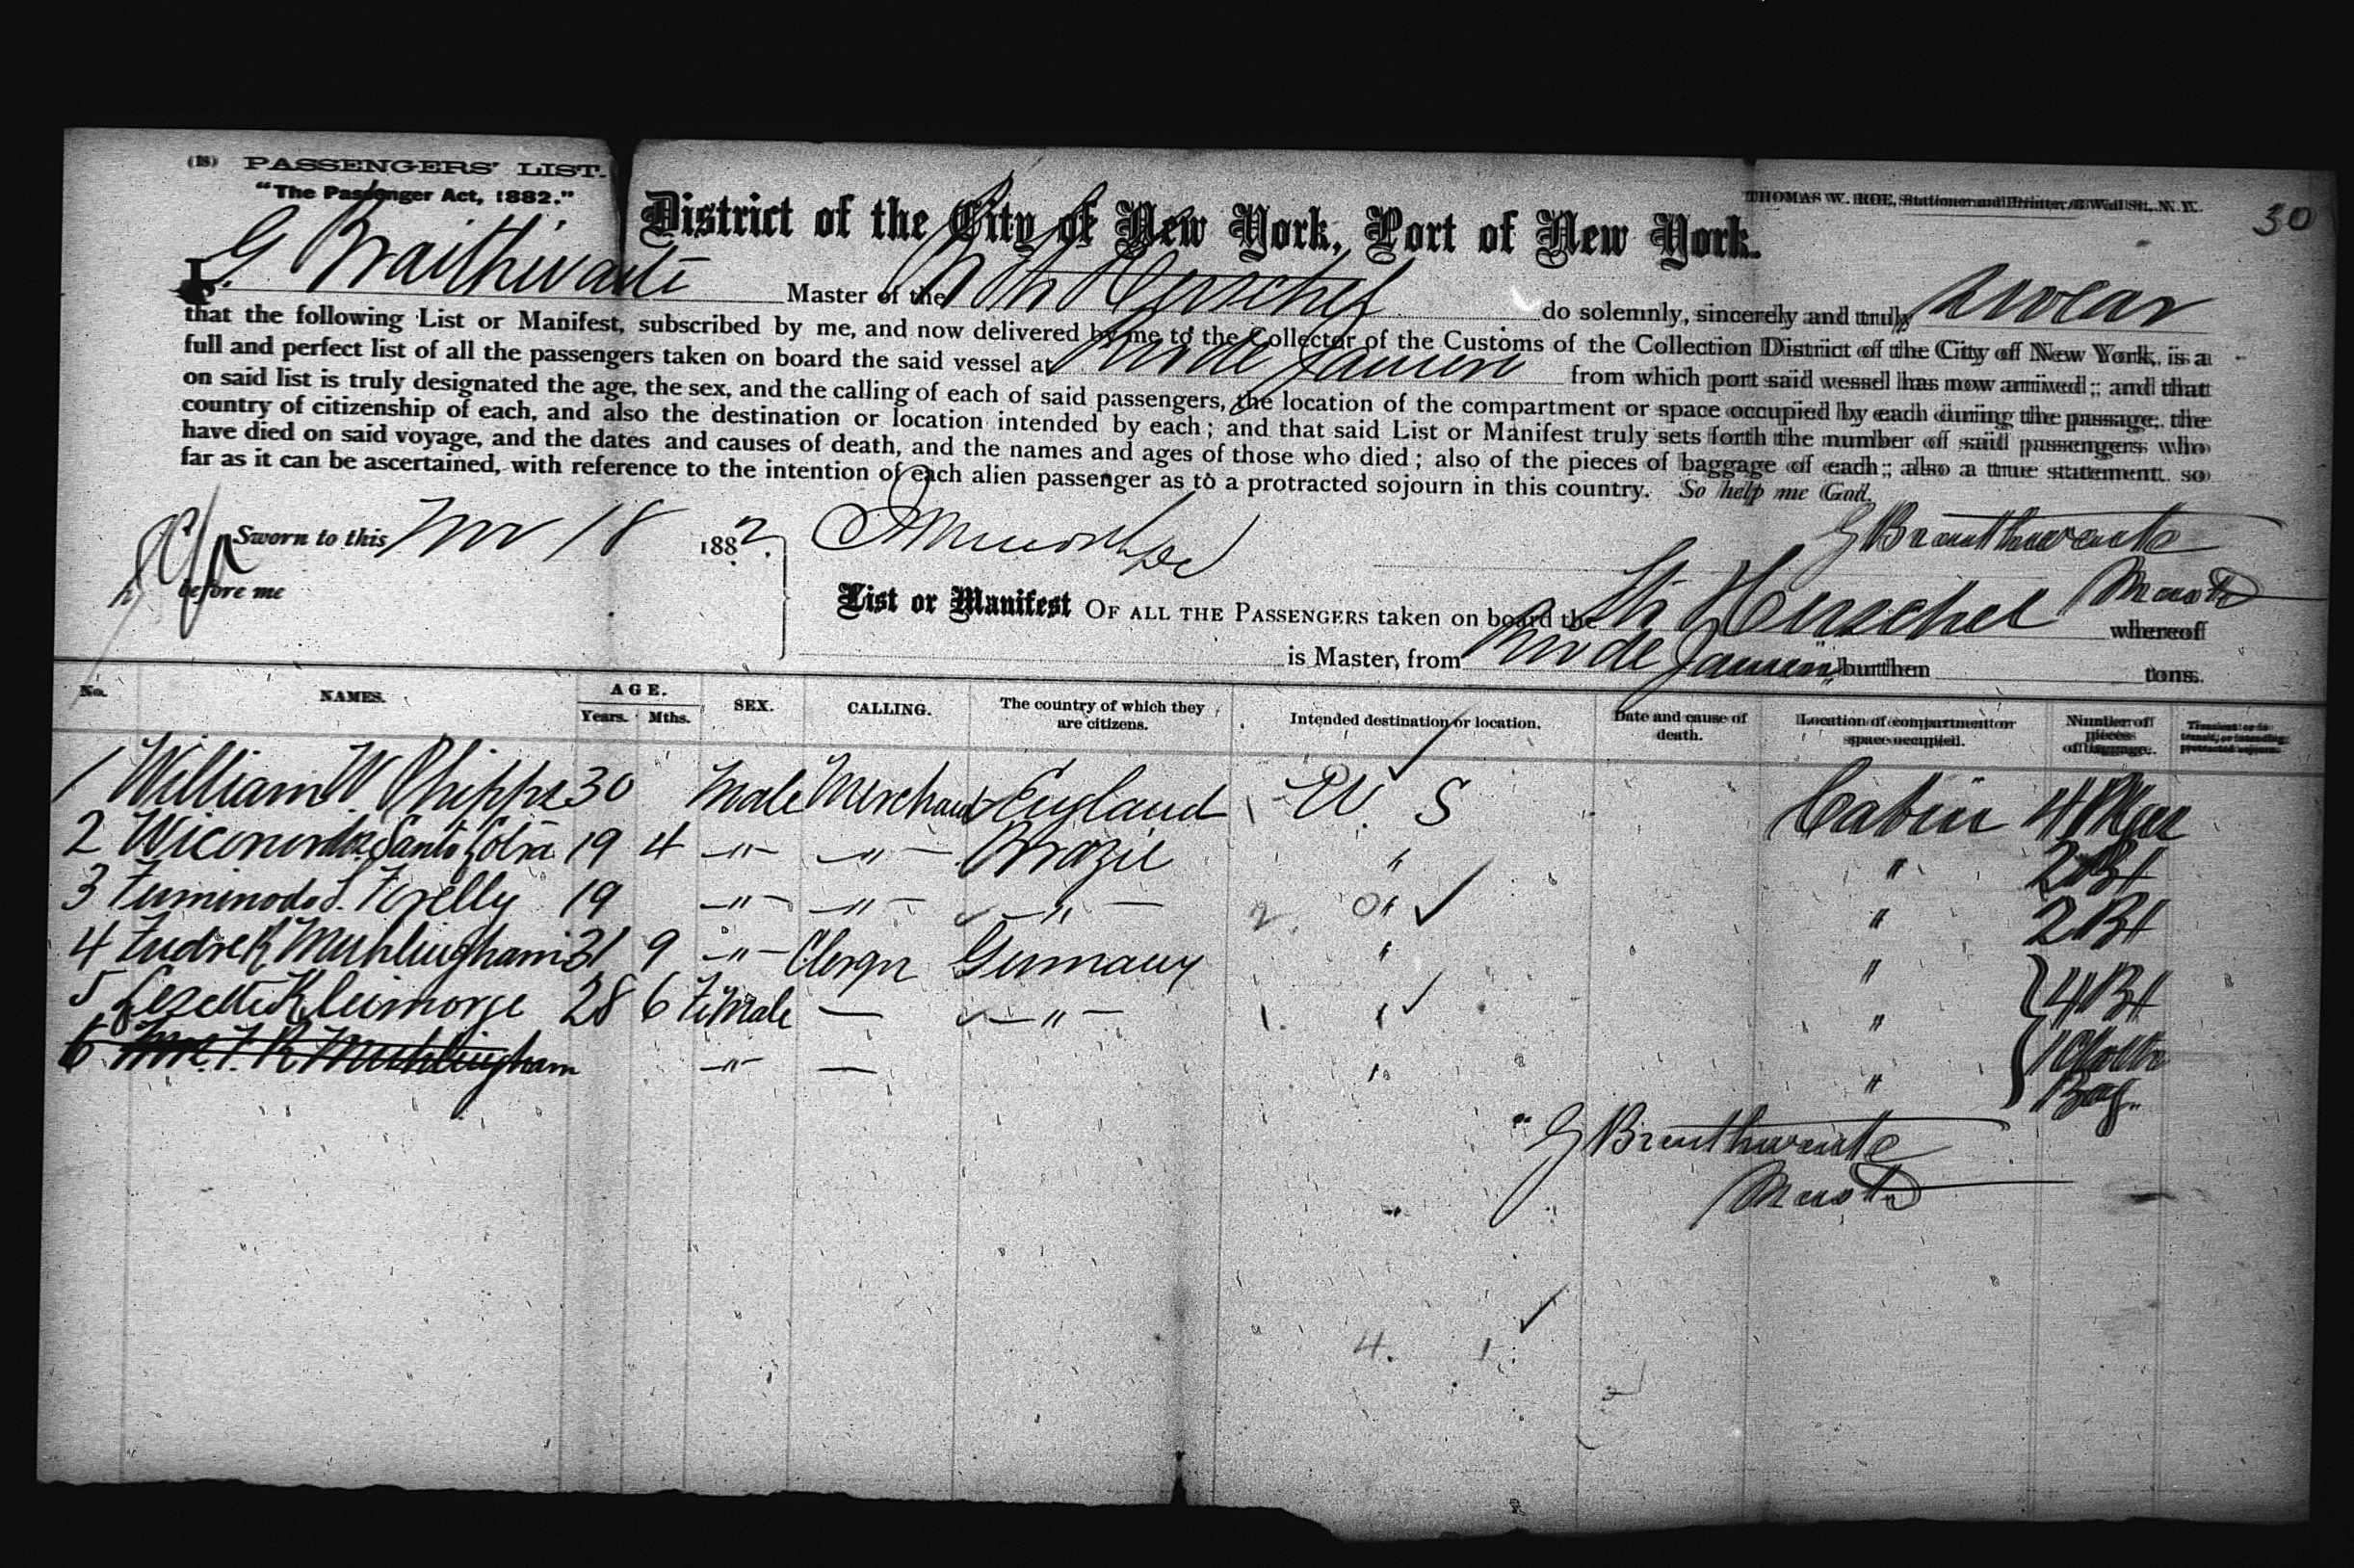 (18) PASSENGERS' LIST.
"The Passenger Act, 1882."
THOMAS W. ROE, Stationer and Printer, Wall St., N. Y.
30
District of the City of New York, Port of New York.
I, G Braithwaite Master of the Herschel do solemnly, sincerely and truly swear
that the following List or Manifest, subscribed by me, and now delivered by me to the Collector of the Customs of the Collection District of the City of New York, is a
full and perfect list of all the passengers taken on board the said vessel at Rio de Janeiro from which port said vessel has now arrived; and that
on said list is truly designated the age, the sex, and the calling of each of said passengers, the location of the compartment or space occupied by each during the passage, the
country of citizenship of each, and also the destination or location intended by each; and that said List or Manifest truly sets forth the number of said passengers who
have died on said voyage, and the dates and causes of death, and the names and ages of those who died; also of the pieces of baggage of each; also a true statement, so
far as it can be ascertained, with reference to the intention of each alien passenger as to a protracted sojourn in this country. So help me God.
G Braithwaite
Sworn to this Nov 18 1882
before me
Master
List or Manifest OF ALL THE PASSENGERS taken on board the Herschel whereof
is Master, from Rio de Janeiro, burthen tons.
No. NAMES. AGE. Years. Mths. SEX. CALLING. The country of which they are citizens. Intended destination or location. Date and cause of death. Location of compartment or space occupied. Number of pieces of baggage. Transient or in transit, or intending protracted sojourn.
1 William W. Phipps 30 Male Merchant England U. S Cabin 4
2 Santo 19 4 —"— —"— Brazil " " 2
3 19 —"— —"— —"— " " 2
4 Muhlingham 31 9 —"— Clergy Germany " "
5 28 6 Female — —"— " " 4
6 Mrs. F. R Muhlingham —"— — " " 1
Bag.
G Braithwaite
Master
4. 1